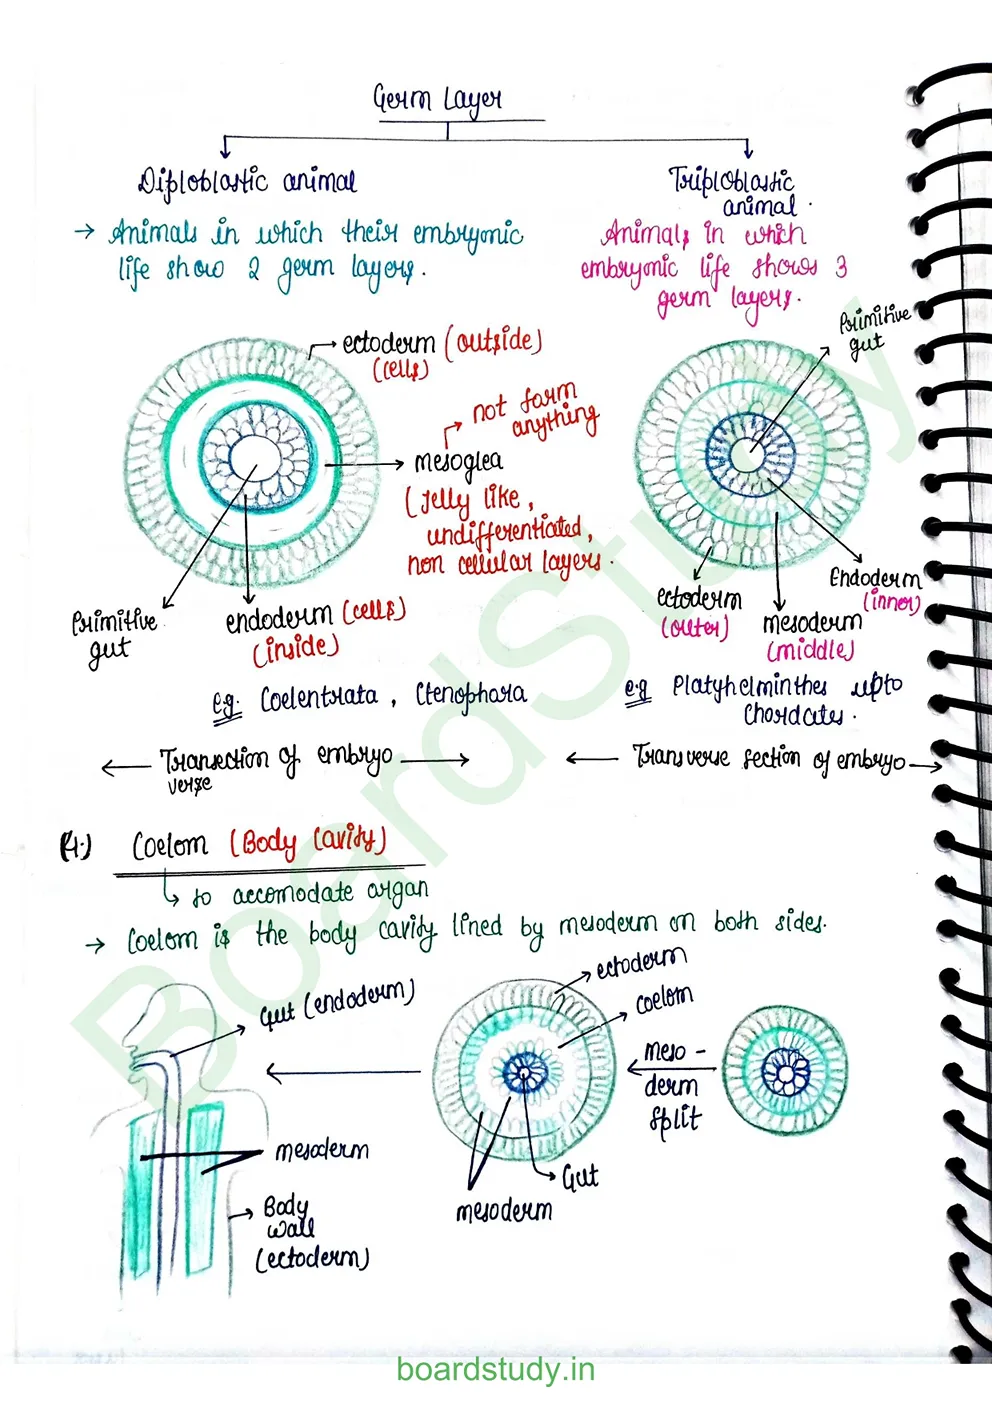 Germ Layer
Diploblastic animal
→ Animals in which their embryonic
life show 2 germ layers.
ectoderm (outside)
(cells)
not form
anything
mesoglea
(Jelly like,
undifferentiated,
non cellular layers.
Primitive
gut
endoderm (cells)
(inside)
e.g. Coelentrata, Ctenophara
Transection of embryo
verse
Triploblastic
animal.
Animals in which
embryonic life shows 3
germ layers.
Primitive
gut
ectoderm
(outer)
mesoderm
(middle)
Endoderm
(inner)
e.g Platyhelminthes upto
Chordates.
Transverse section of embryo
(4.) Coelom (Body Cavity)
↳ to accomodate organ
→ Coelom is the body cavity lined by mesoderm on both sides.
Gut (endoderm)
mesoderm
Body
wall
(ectoderm)
ectoderm
coelom
Gut
mesoderm
meso-
derm
split
BoardStudy
boardstudy.in